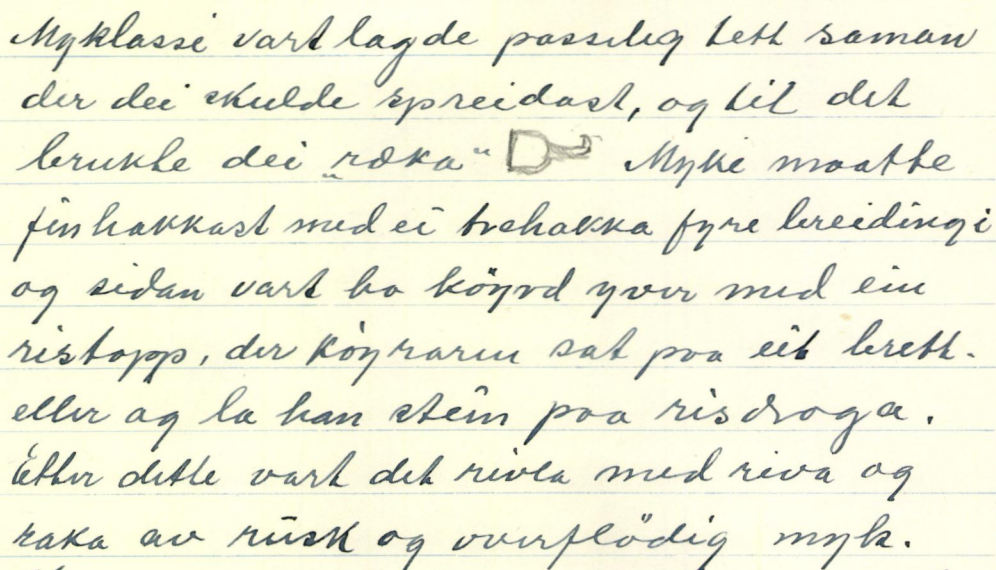 Myklassi vart lagde passeleg tett saman
der dei skulde spreidast, og til det
brukte dei „ræka“ Myki maatte
finhakkast med ei trehakka fyre breidingi
og sidan vart ho köyrd yver med ein
ristopp, der köyraren sat paa eit brett.
eller og la han stein paa risdroga.
Etter dette vart det rivla med riva og
raka av rusk og overflödig myk.